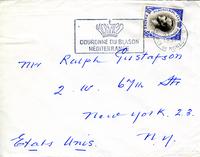 COURONNE DU BLASON
MÉDITERRANÉE
Mr Ralph Gustafson
2. W. 67th Str
New York. 23.
N.Y.
Etats Unis.